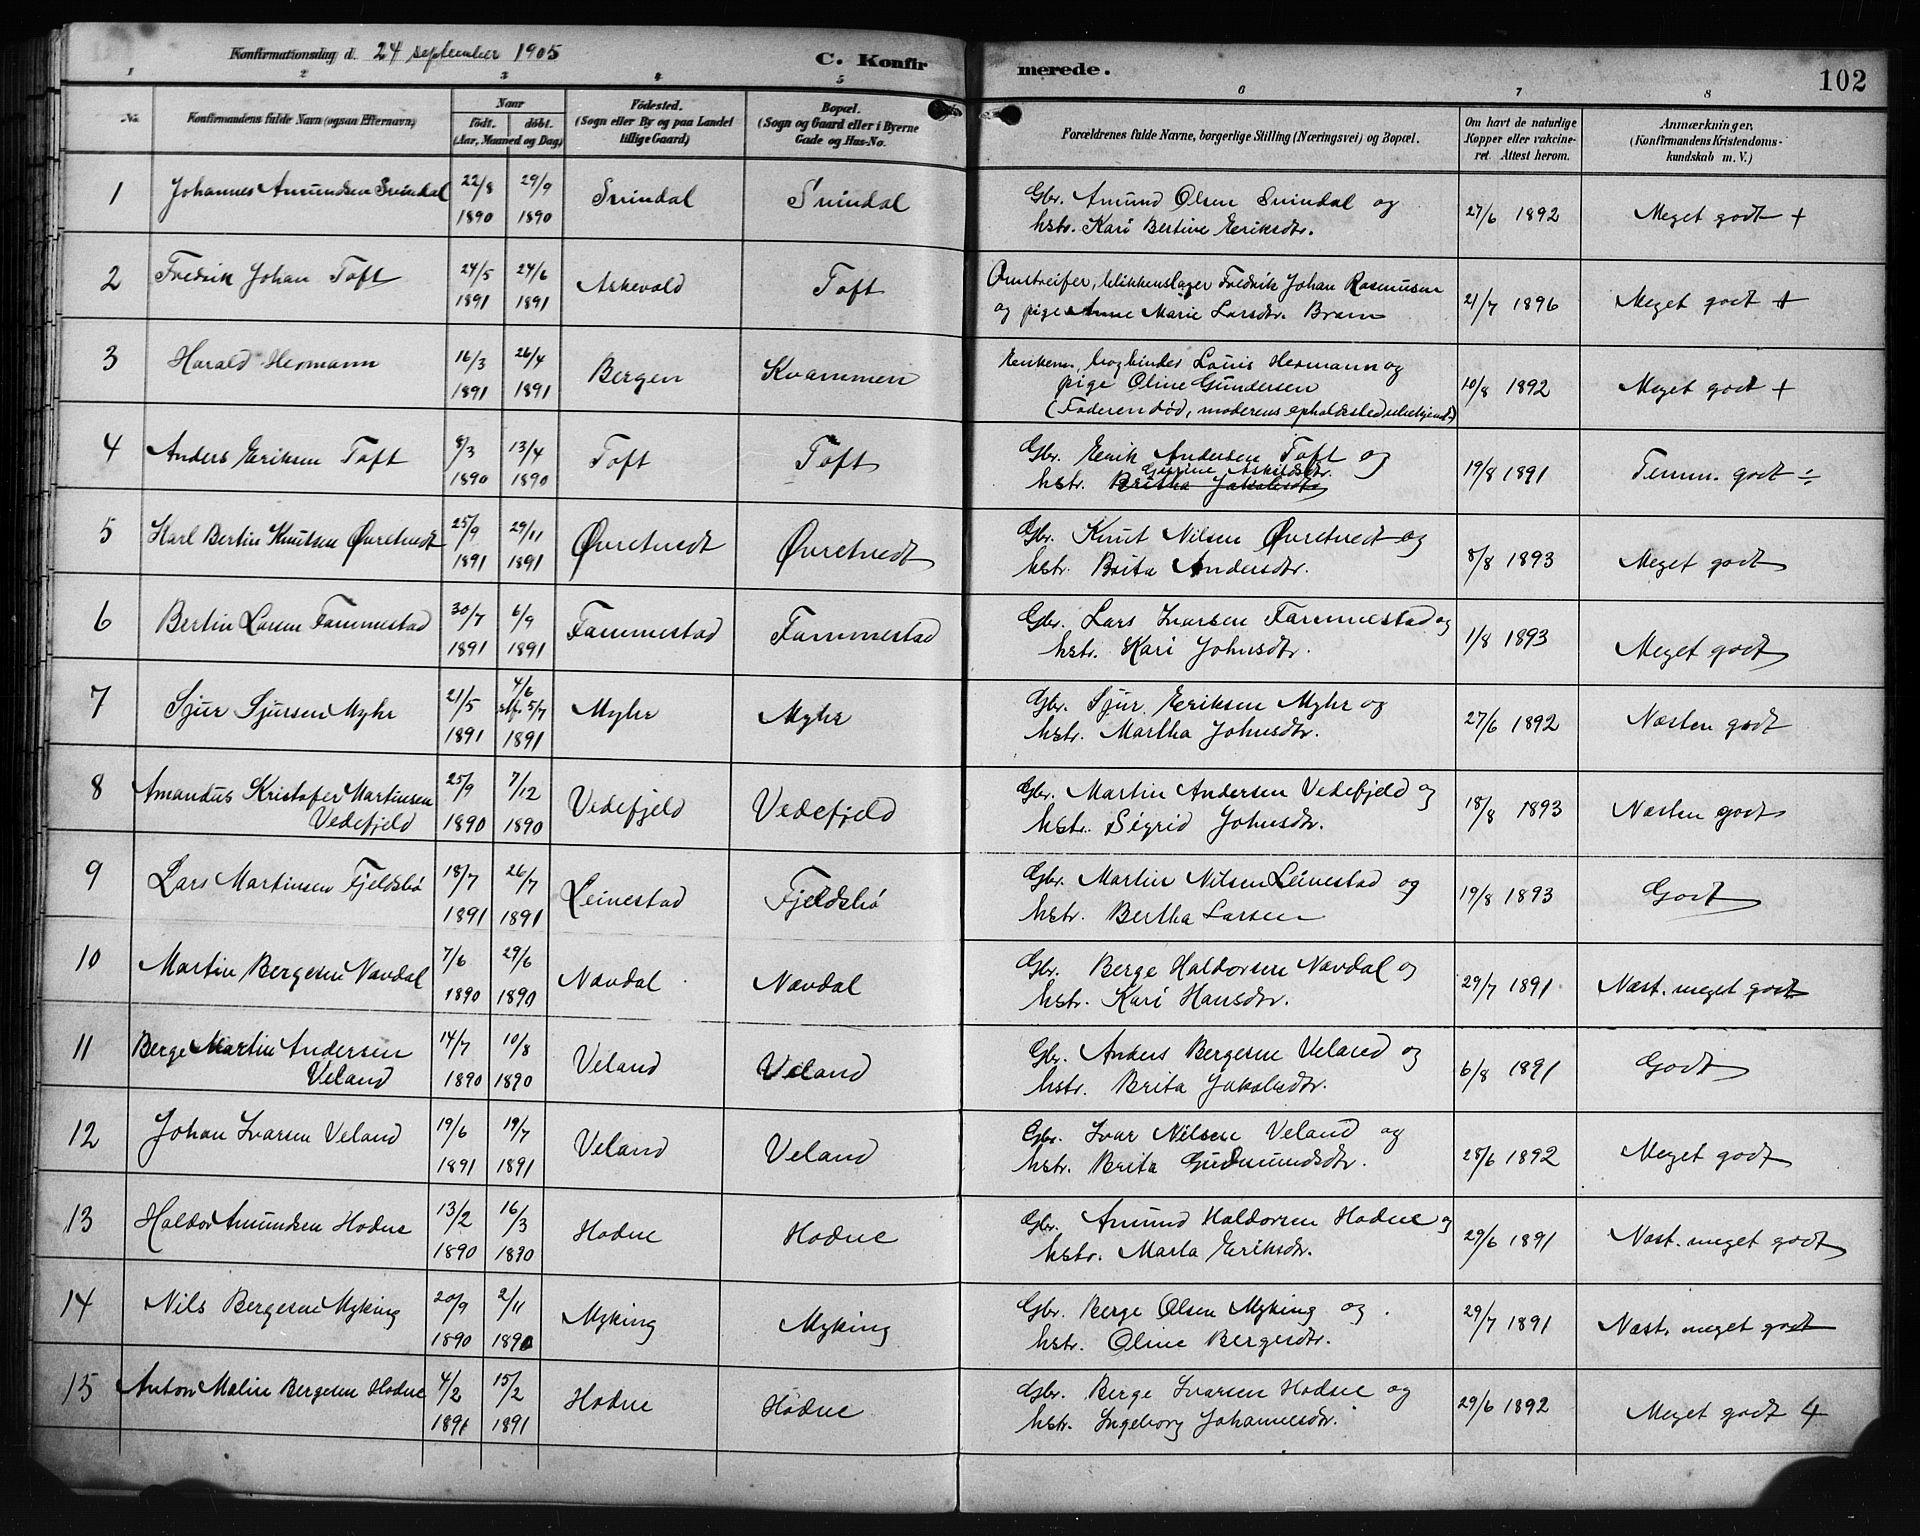 Konfirmationsdag d. 24 september 1905
C. Konfirmerede.
102
1 2 3 4 5 6 7 8
No.
Konfirmandens fulde Navn (ogsaa Efternavn)
Naar
födt. döbt.
(Aar, Maaned og Dag)
Födested.
(Sogn eller By og paa Landet
tillige Gaard)
Bopæl.
(Sogn og Gaard eller i Byerne
Gade og Hus-No.
Forældrenes fulde Navne, borgerlige Stilling (Næringsvei) og Bopæl.
Om havt de naturlige
Kopper eller vakcine-
ret. Attest herom.
Anmærkninger.
(Konfirmandens Kristendoms-
kundskab m. V.)
1 Johannes Amundsen Svindal 22/8 1890 29/9 1890 Svindal Svindal
Gbr. Amund Olsen Svindal og
hstr. Kari Bertine Eriksdtr. 27/6 1892 Meget godt +
2 Fredrik Johan Toft 24/5 1891 24/6 1891 Askevold Toft
Omstreifer, blikkenslager Fredrik Johan Rasmusen
og pige Anne Marie Larsdtr. Bram 21/7 1896 Meget godt +
3 Harald Hermann 16/3 1891 26/4 1891 Bergen Kvammen
Enkem., bogbinder Louis Hermann og
pige Oline Gundersen
(Faderen död, moderens opholdssted ubekjendt) 10/8 1892 Meget godt +
4 Anders Eriksen Toft 8/3 1890 13/4 1890 Toft Toft
Gbr. Erik Andersen Toft og
Gurine Askildsdtr.
hstr. Britha Jakobsdtr 19/8 1891 Temm. godt ÷
5 Karl Bertin Knutsen Øvretvedt 25/9 1891 29/11 1891 Øvretvedt Øvretvedt
Gbr. Knut Nilsen Øvretvedt og
hstr. Brita Andersdtr. 8/8 1893 Meget godt
6 Bertin Larsen Fammestad 30/7 1891 6/9 1891 Fammestad Fammestad
Gbr. Lars Ivarsen Fammestad og
hstr. Kari Johnsdtr. 1/8 1893 Meget godt
7 Sjur Sjursen Myhr 21/5 1891 4/6 stf. 5/7 1891 Myhr Myhr
Gbr. Sjur Eriksen Myhr og
hstr. Martha Johnsdtr. 27/6 1892 Næsten godt
8 Amandus Kristofer Martinsen
Vedefjeld 25/9 1890 7/12 1890 Vedefjeld Vedefjeld
Gbr. Martin Andersen Vedefjeld og
hstr. Sigrid Johnsdtr. 18/8 1893 Næsten godt
9 Lars Martinsen Fjeldsbö 18/7 1891 26/7 1891 Leinestad Fjeldsbö
Gbr. Martin Nilsen Leinestad og
hstr. Bertha Larsen 19/8 1893 Godt
10 Martin Bergesen Navdal 7/6 1890 29/6 1890 Navdal Navdal
Gbr. Berge Haldorsen Navdal og
hstr. Kari Hansdtr. 29/7 1891 Næst. meget godt
11 Berge Martin Andersen
Veland 14/7 1890 10/8 1890 Veland Veland
Gbr. Anders Bergesen Veland og
hstr. Brita Jakobsdtr. 6/8 1891 Godt
12 Johan Ivarsen Veland 19/6 1891 19/7 1891 Veland Veland
Gbr. Ivar Nilsen Veland og
hstr. Brita Gudmundsdtr. 28/6 1892 Meget godt
13 Haldor Amundsen Hodne 13/2 1890 16/3 1890 Hodne Hodne
Gbr. Amund Haldorsen Hodne og
hstr. Marta Eriksdtr. 29/6 1891 Næst. meget godt
14 Nils Bergesen Myking 20/9 1890 2/11 1890 Myking Myking
Gbr. Berge Olsen Myking og
hstr. Oline Bergesdtr. 29/7 1891 Næst. meget godt
15 Anton Malin Bergesen Hodne 4/2 1891 15/2 1891 Hodne Hodne
Gbr. Berge Ivarsen Hodne og
hstr. Ingeborg Johannesdtr. 29/6 1892 Meget godt 4